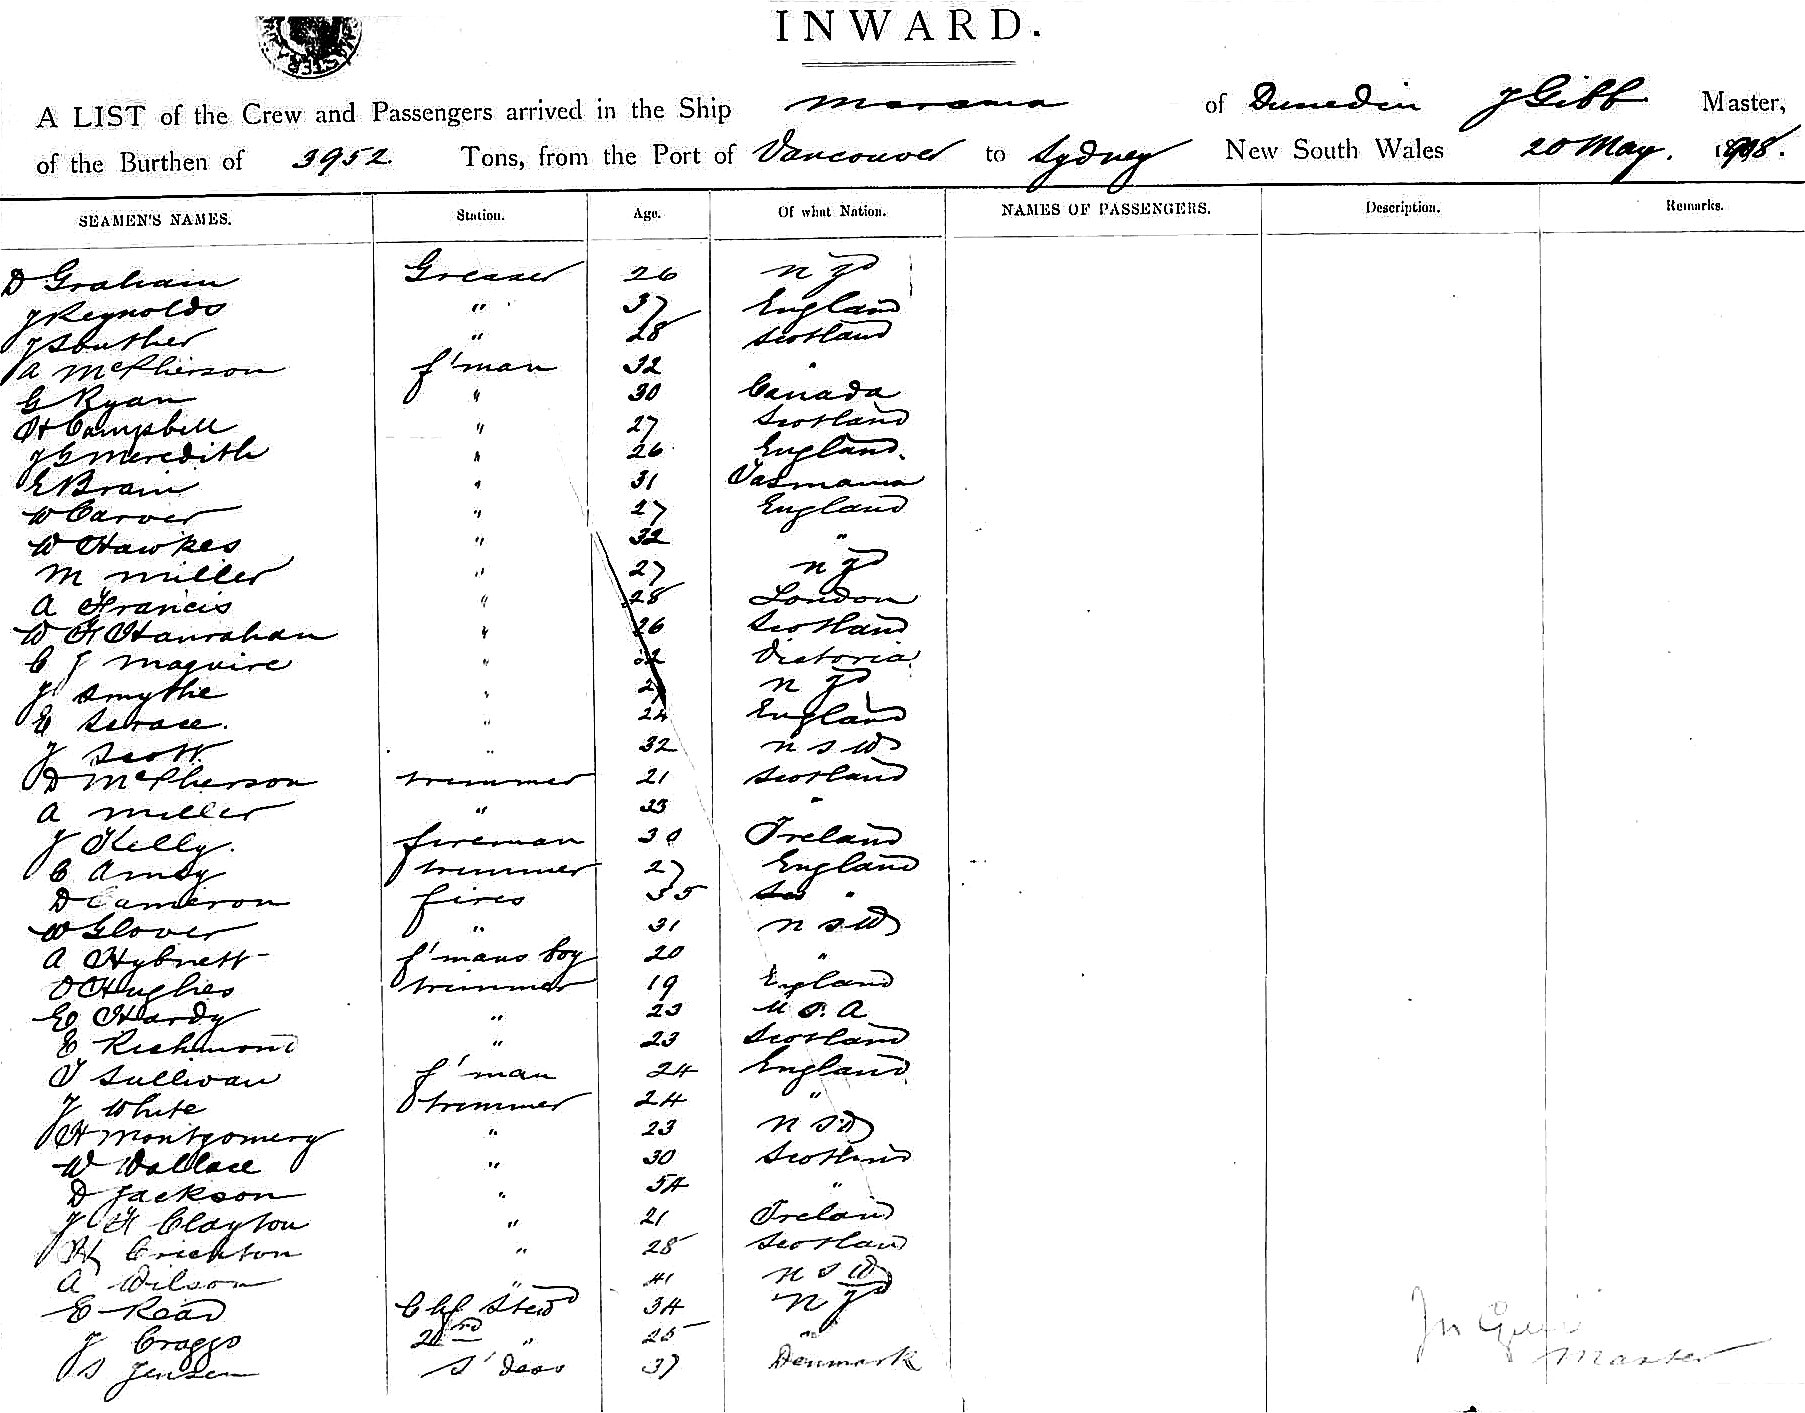 INWARD.
A LIST of the Crew and Passengers arrived in the Ship Marama of Dunedin J Gibb Master,
of the Burthen of 3952 Tons, from the Port of Vancouver to Sydney New South Wales 20 May. 1908.
SEAMEN'S NAMES. Station. Age. Of what Nation. NAMES OF PASSENGERS. Description. Remarks.
D Graham Greaser 26 N Zd
J Reynolds " 37 England
J Souther " 28 Scotland
A McPherson f'man 32 "
G Ryan " 30 Canada
H Campbell " 27 Scotland
J G Meredith " 26 England.
E Brain " 31 Tasmania
W Carver " 27 England
W Hawkes " 32 "
M Miller " 27 N Zd
A Francis " 28 London
W F Hanrahan " 26 Scotland
C J Maguire " 32 Victoria
J Smythe " 27 N Zd
E Scrase. " 24 England
J Scott " 32 N S W
D McPherson trimmer 21 Scotland
A Miller " 33 "
J Kelly. fireman 30 Ireland
C Amsy trimmer 27 England
D Cameron fires 35 "
W Glover " 31 N S W
A Hybnett f'mans boy 20 "
O Hughes trimmer 19 England
E Hardy " 23 U S. A
E Richmond " 23 Scotland
T Sullivan f'man 24 England
J White trimmer 24 "
H Montgomery " 23 N S W
W Wallace " 30 Scotland
D Jackson " 54 "
J F Clayton " 21 Ireland
H Crichton " 28 Scotland
A Wilson " 41 N S W
E Read Chf Stewd 34 N Zd
J Craggs 2nd " 25 "
S Jensen S' 37 Denmark
Master